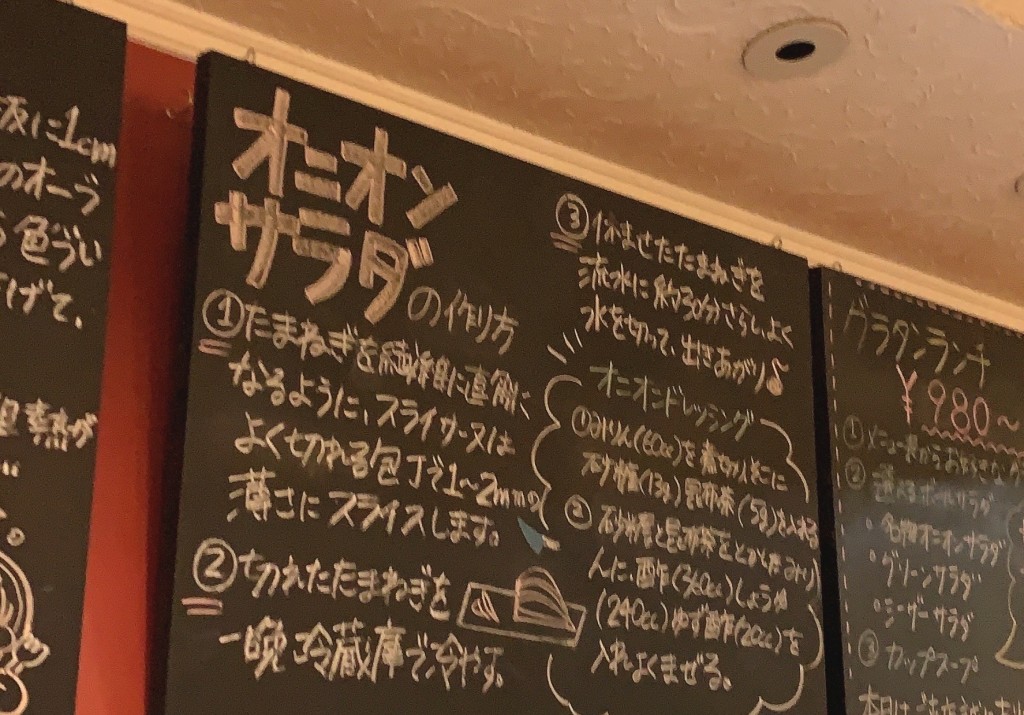 板に1cm
のオーブ
色づい
げて、
熱が
オニオン
サラダの作り方
①たまねぎを繊維に直角に
なるように、スライサー又は
よく切れる包丁で1〜2mmの
薄さにスライスします。
②切れたたまねぎを
一晩冷蔵庫で冷やす。
③休ませたたまねぎを
流水に約30分さらし、よく
水を切って、出きあがり♪
オニオンドレッシング
①みりん(60cc)を煮切り
砂糖(13g)昆布茶(5g)を入れる
② 砂糖と昆布茶をとかしたみり
んに、酢(360cc)しょうゆ
(240cc)ゆず酢(20cc)を
入れよくまぜる。
グラタンランチ
¥980〜
①メニュー表からお好きな
②選べるサラダ
・名物オニオンサラダ
・グリーンサラダ
・シーザーサラダ
③カップスープ
本日は